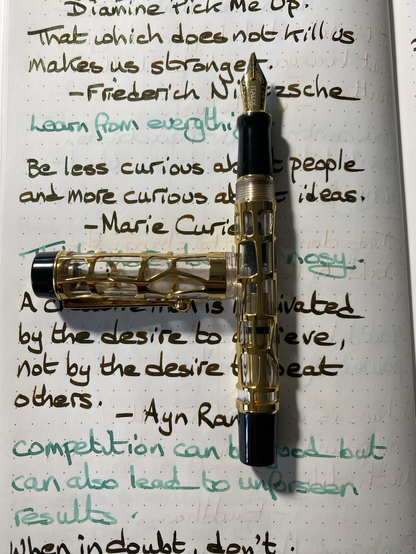 Diamine Pick Me Up.
That which does not kill us
makes us stronger.
-Frederich Nietzsche
Learn from everything
Be less curious about people
and more curious about ideas.
-Marie Curie
nosy.
A is motivated
by the desire to achieve,
not by the desire to beat
others.
- Ayn Rand
competition can be good but
can also lead to unforseen
results.
When in doubt, don't